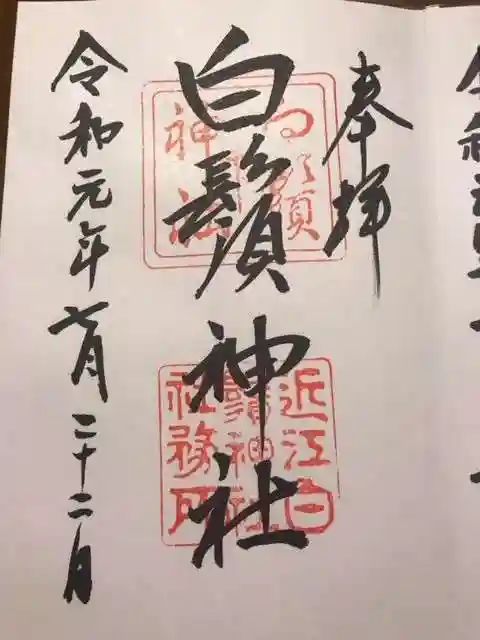 奉拝
白鬚神社
令和元年七月二十二日
白鬚
神社
近江白
鬚神社
社務所